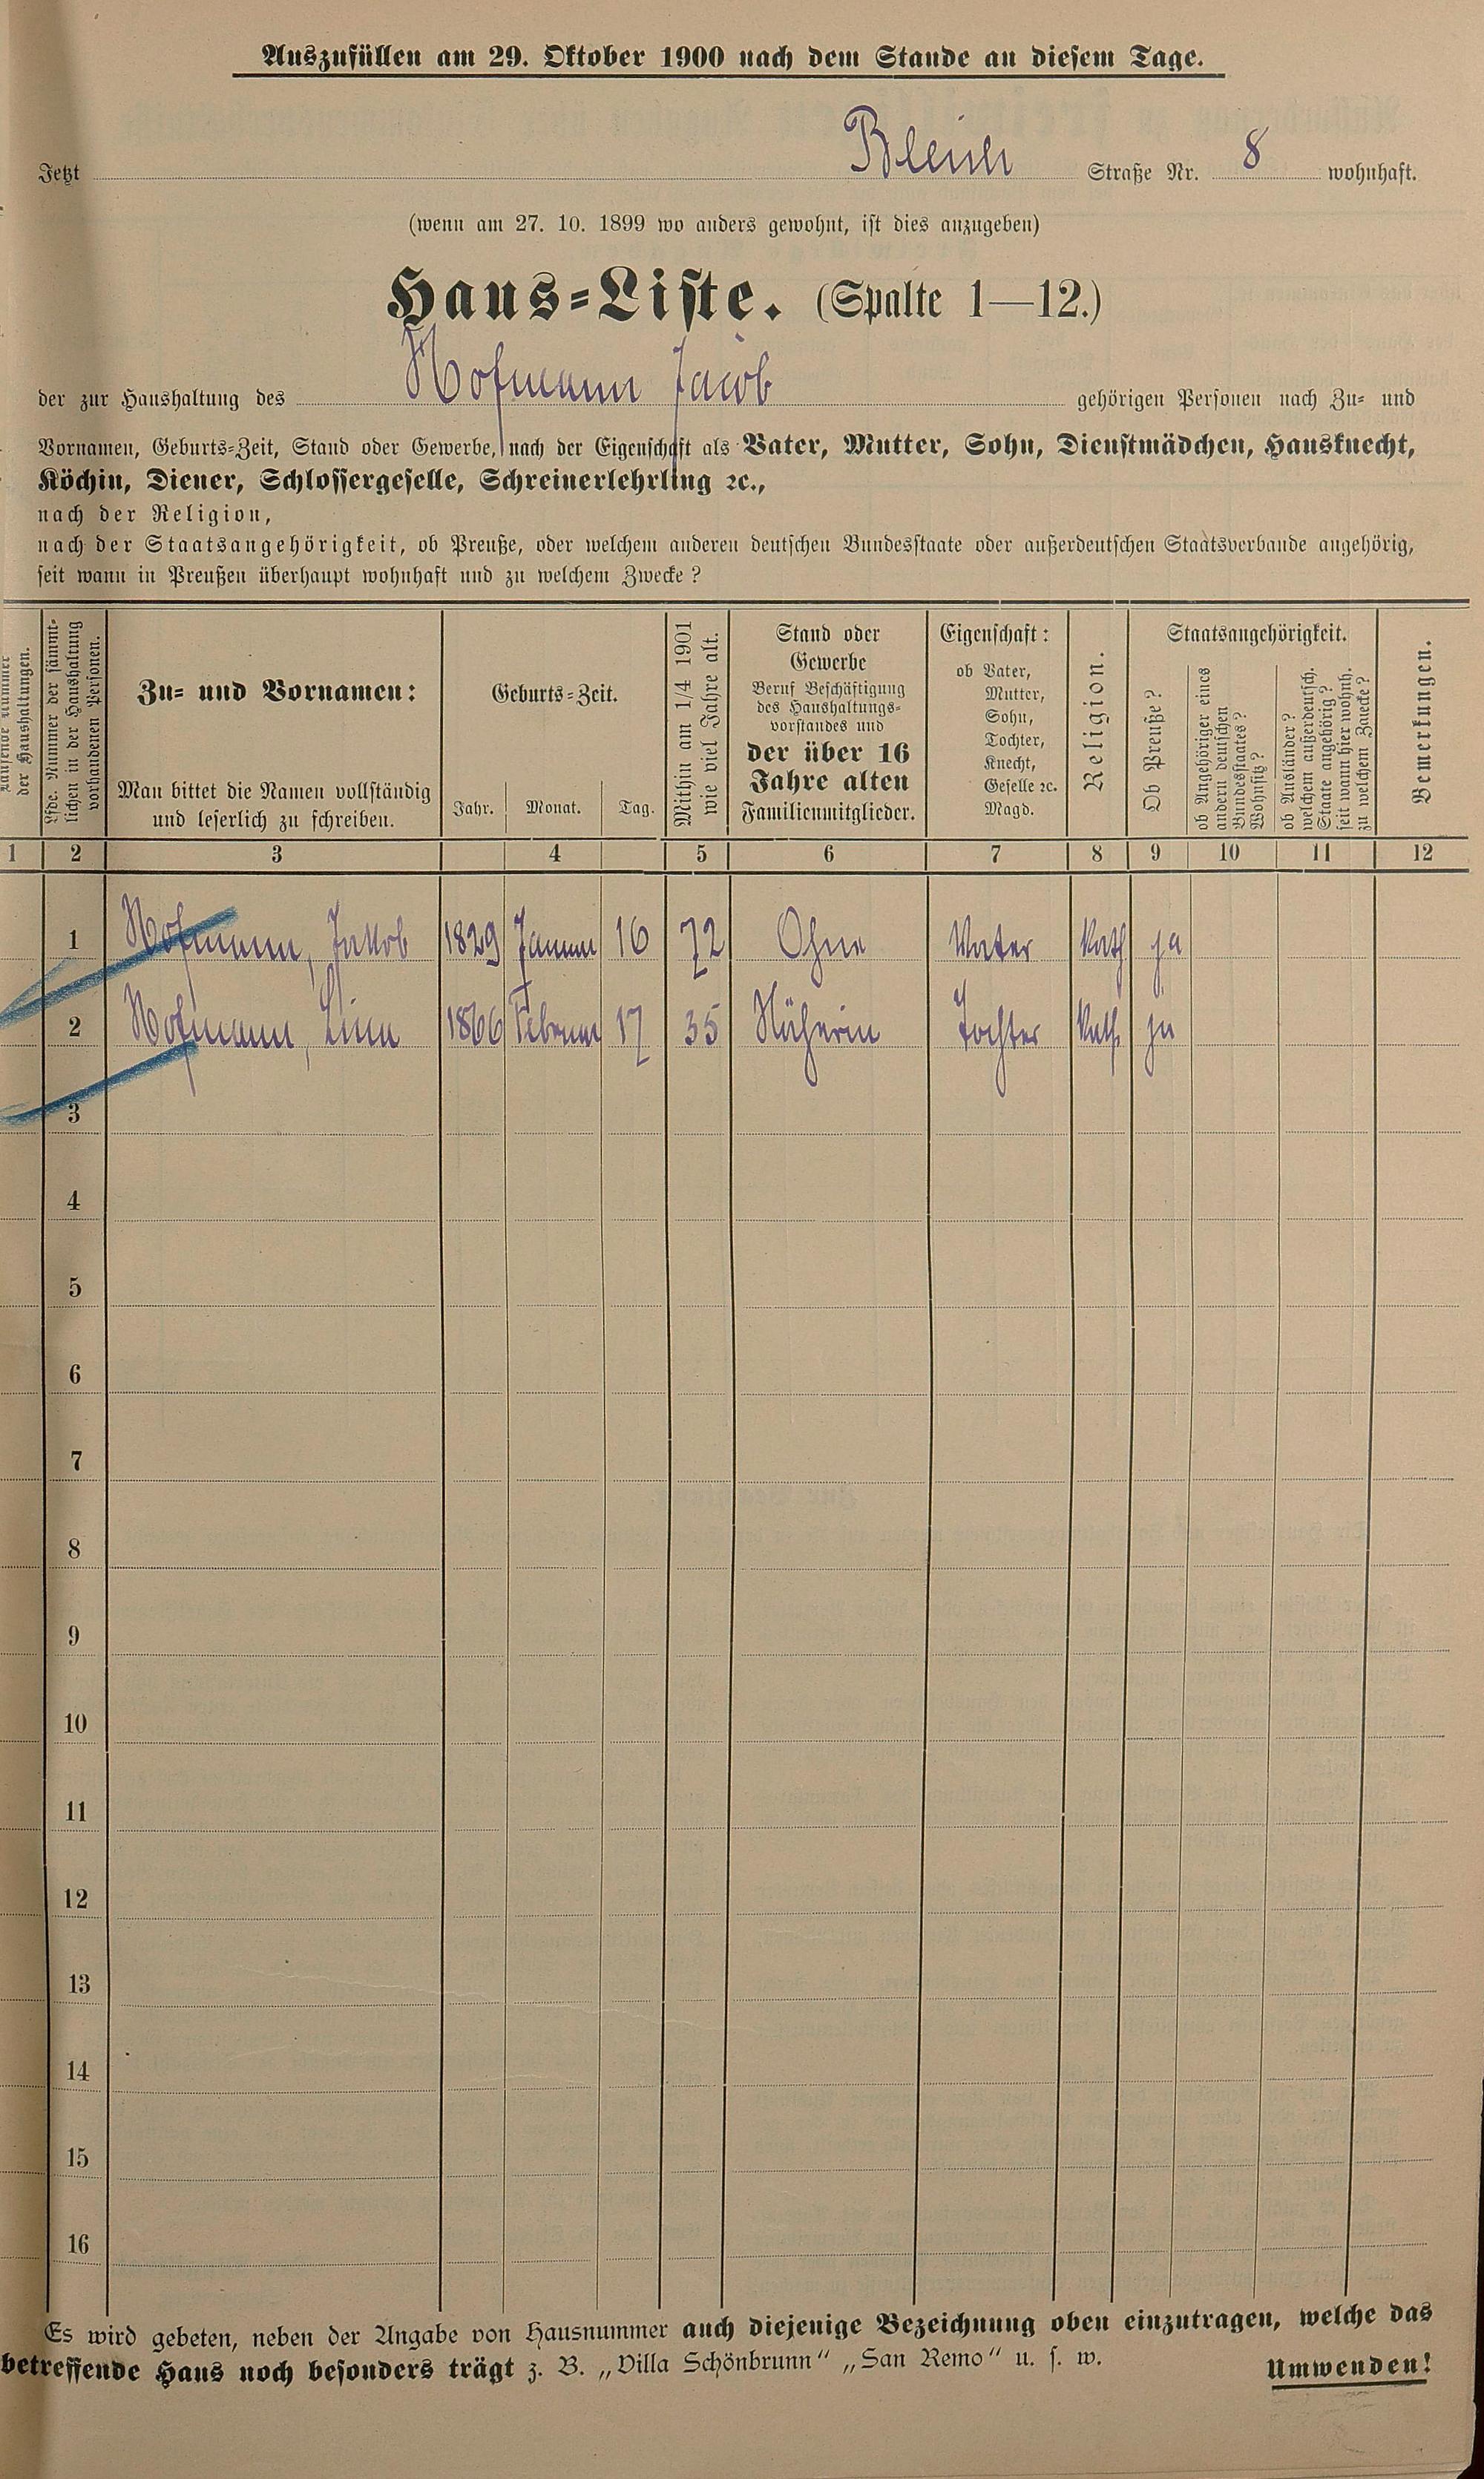 Auszufüllen am 29. Oktober 1900 nach dem Stande an diesem Tage.
Jetzt Bleich Straße Nr. 8 wohnhaft.
(wenn am 27. 10. 1899 wo anders gewohnt, ist dies anzugeben)
Haus-Liste. (Spalte 1—12.)
der zur Haushaltung des Hofmann Jacob gehörigen Personen nach Zu- und
Vornamen, Geburts-Zeit, Stand oder Gewerbe, nach der Eigenschaft als Vater, Mutter, Sohn, Dienstmädchen, Hausknecht,
Köchin, Diener, Schlossergeselle, Schreinerlehrling ꝛc.,
nach der Religion,
nach der Staatsangehörigkeit, ob Preuße, oder welchem anderen deutschen Bundesstaate oder außerdeutschen Staatsverbande angehörig,
seit wann in Preußen überhaupt wohnhaft und zu welchem Zwecke?
Laufende Nummer
der Haushaltungen.
Lfde. Nummer der sämmt-
lichen in der Haushaltung
vorhandenen Personen.
Zu- und Vornamen:
Man bittet die Namen vollständig
und leserlich zu schreiben.
Geburts-Zeit.
Jahr. Monat. Tag.
Mithin am 1/4 1901
wie viel Jahre alt.
Stand oder
Gewerbe
Beruf Beschäftigung
des Haushaltungs-
vorstandes und
der über 16
Jahre alten
Familienmitglieder.
Eigenschaft:
ob Vater,
Mutter,
Sohn,
Tochter,
Knecht,
Geselle ꝛc.
Magd.
Religion.
Staatsangehörigkeit.
Ob Preuße?
ob Angehöriger eines
andern deutschen
Bundesstaates?
Wohnsitz?
ob Ausländer?
welchem außerdeutsch.
Staate angehörig?
seit wann hier wohnh.
zu welchem Zwecke?
Bemerkungen.
1 2 3 4 5 6 7 8 9 10 11 12
1 Hofmann, Jakob 1829 Januar 16 72 Ohne Vater Kath ja
2 Hofmann, Lina 1866 Februar 17 35 Näherin Tochter Kath. ja
3
4
5
6
7
8
9
10
11
12
13
14
15
16
Es wird gebeten, neben der Angabe von Hausnummer auch diejenige Bezeichnung oben einzutragen, welche das
betreffende Haus noch besonders trägt z. B. „Villa Schönbrunn“ „San Remo“ u. s. w.
Umwenden!